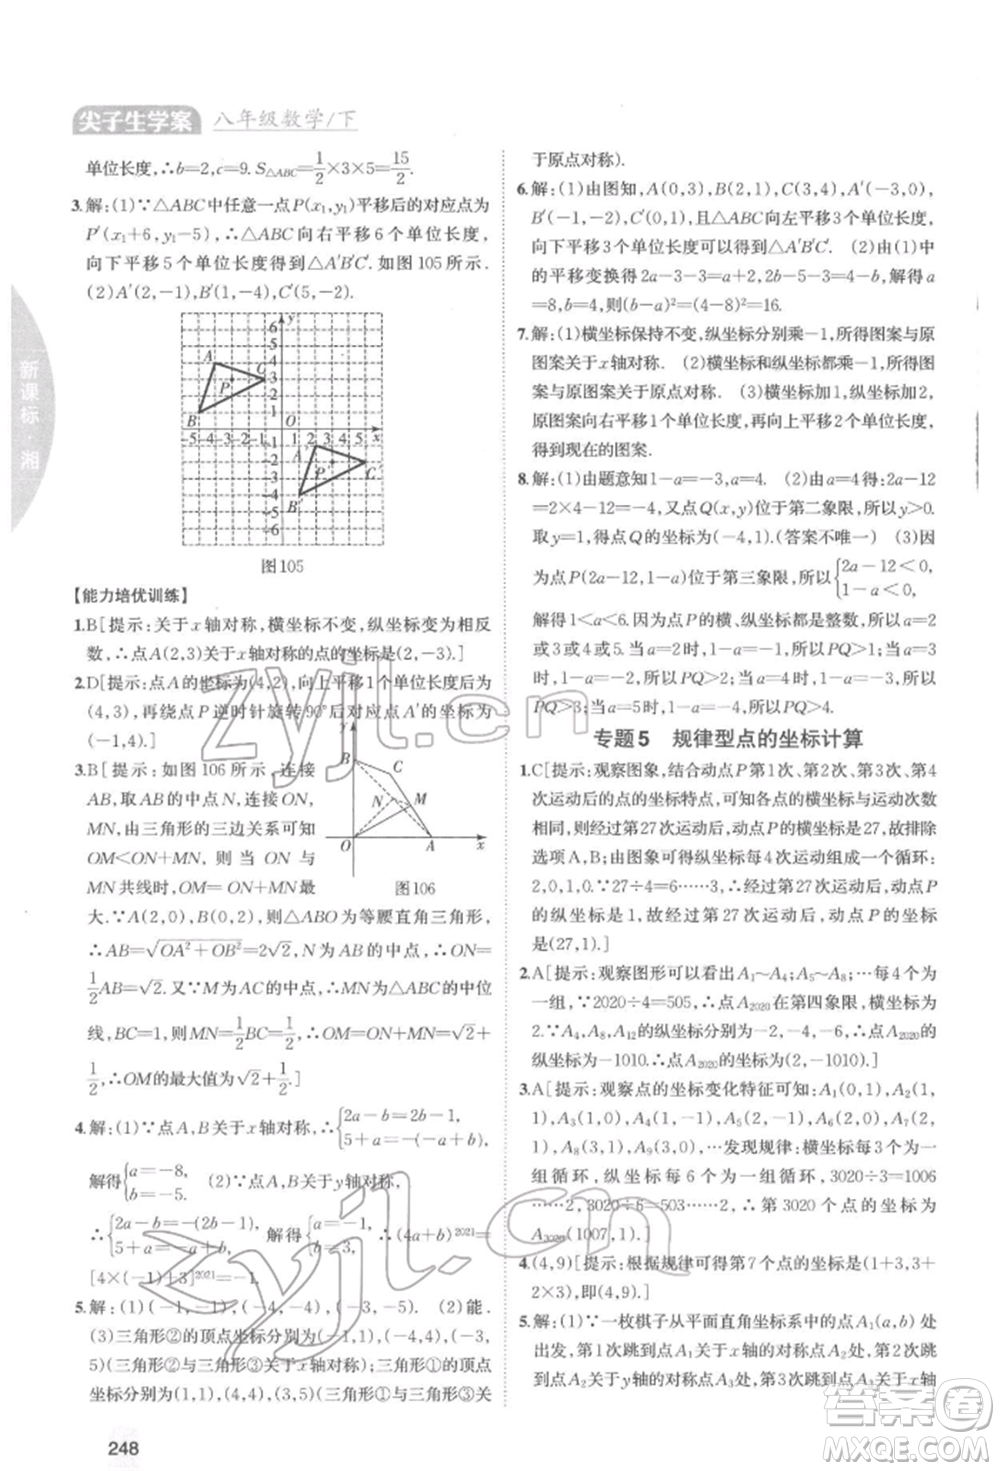 尖子生学案 八年级数学/下
新课标·湘
单位长度,∴b=2,c=9.S△ABC=1/2×3×5=15/2.
3.解:(1)∵△ABC中任意一点P(x₁,y₁)平移后的对应点为
P′(x₁+6,y₁-5),∴△ABC向右平移6个单位长度,
向下平移5个单位长度得到△A′B′C′.如图105所示.
(2)A′(2,-1),B′(1,-4),C′(5,-2).
图105
【能力培优训练】
1.B[提示:关于x轴对称,横坐标不变,纵坐标变为相反
数,∴点A(2,3)关于x轴对称的点的坐标是(2,-3).]
2.D[提示:点A的坐标为(4,2),向上平移1个单位长度为
(4,3),再绕点P逆时针旋转90°后对应点A′的坐标为
(-1,4).]
3.B[提示:如图106所示,连接
AB,取AB的中点N,连接ON,
MN,由三角形的三边关系可知
OM<ON+MN,则当ON与
MN共线时,OM=ON+MN最
图106
大.∵A(2,0),B(0,2),则△ABO为等腰直角三角形,
∴AB=√(OA²+OB²)=2√2,N为AB的中点,∴ON=
1/2AB=√2.又∵M为AC的中点,∴MN为△ABC的中位
线,BC=1,则MN=1/2BC=1/2,∴OM=ON+MN=√2+
1/2,∴OM的最大值为√2+1/2.]
4.解:(1)∵点A,B关于x轴对称,∴{2a-b=2b-1, 5+a=-(-a+b),
解得{a=-8, b=-5. (2)∵点A,B关于y轴对称,
∴{2a-b=-(2b-1), 5+a=-a+b, 解得{a=-1, b=3, ∴(4a+b)²⁰²¹=
[4×(-1)+3]²⁰²¹=-1.
5.解:(1)(-1,-1),(-4,-4),(-3,-5). (2)能.
(3)三角形②的顶点坐标分别为(-1,1),(-4,4),(-3,
5)(三角形②与三角形③关于x轴对称);三角形①的顶点
坐标分别为(1,1),(4,4),(3,5)(三角形①与三角形③关
248
于原点对称).
6.解:(1)由图知,A(0,3),B(2,1),C(3,4),A′(-3,0),
B′(-1,-2),C′(0,1),且△ABC向左平移3个单位长度,
向下平移3个单位长度可以得到△A′B′C′. (2)由(1)中
的平移变换得2a-3-3=a+2,2b-3-3=4-b,解得a
=8,b=4,则(b-a)²=(4-8)²=16.
7.解:(1)横坐标保持不变,纵坐标分别乘-1,所得图案与原
图案关于x轴对称. (2)横坐标和纵坐标都乘-1,所得图
案与原图案关于原点对称. (3)横坐标加1,纵坐标加2,
原图案向右平移1个单位长度,再向上平移2个单位长度,
得到现在的图案.
8.解:(1)由题意知1-a=-3,解得a=4. (2)由a=4得:2a-12
=2×4-12=-4,又点Q(x,y)位于第二象限,所以y>0.
取y=1,得点Q的坐标为(-4,1).(答案不唯一) (3)因
为点P(2a-12,1-a)位于第三象限,所以{2a-12<0, 1-a<0,
解得1<a<6.因为点P的横、纵坐标都是整数,所以a=2
或3或4或5.当a=2时,1-a=-1,所以PQ>1;当a=3
时,1-a=-2,所以PQ>2;当a=4时,1-a=-3,所以
PQ>3;当a=5时,1-a=-4,所以PQ>4.
专题5 规律型点的坐标计算
1.C[提示:观察图象,结合动点P第1次、第2次、第3次、第4
次运动后的点的坐标特点,可知各点的横坐标与运动次数
相同,则经过第27次运动后,动点P的横坐标是27,故排除
选项A,B;由图象可得纵坐标每4次运动组成一个循环:
2,0,1,0.∵27÷4=6……3,∴经过第27次运动后,动点P的
纵坐标是1,故经过第27次运动后,动点P的坐标
是(27,1).]
2.A[提示:观察图形可以看出A₁~A₄;A₅~A₈;…每4个为
一组,∵2020÷4=505,∴点A₂₀₂₀在第四象限,横坐标为
2.∵A₄,A₈,A₁₂的纵坐标分别为-2,-4,-6,∴点A₂₀₂₀的
纵坐标为-1010.∴点A₂₀₂₀的坐标为(2,-1010).]
3.A[提示:观察点的坐标变化特征可知:A₁(0,1),A₂(1,
1),A₃(1,0),A₄(1,-1),A₅(2,-1),A₆(2,0),A₇(2,
1),A₈(3,1),A₉(3,0),…发现规律:横坐标每3个为一
组循环,纵坐标每6个为一组循环,3020÷3=1006
……2,3020÷6=503……2,∴第3020个点的坐标为
A₃₀₂₀(1007,1).]
4.(4,9)[提示:根据规律可知第7个点的坐标是(1+3,3+
2×3),即(4,9).]
5.解:(1)∵一枚棋子从平面直角坐标系中的点A₁(a,b)处
出发,第1次跳到点A₁关于x轴的对称点A₂处,第2次跳
到点A₂关于y轴的对称点A₃处,第3次跳到点A₃关于x轴
zyjl.cn
zyjl.cn
答案圈
MXQE.COM